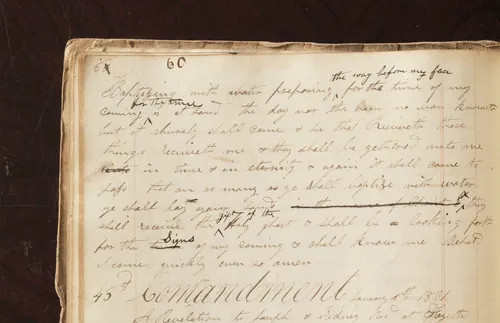 60
the way before my face
Baptising with water preparing ^ for the time of my
for the time
coming ^ is at hand the day nor the hour no man knoweth
but it shurely shall come & he that Receiveth these
things receiveth me & they shall be gethered unto me
in time & in eternity & again it shall come to
pass that on as many as ye shall baptize with water
ye shall lay your hands in the name of Christ & they
gift of the
shall receive the ^ Holy ghost & shall be looking forth
Signs
for the of my coming & shall know me Behold
I come quickly even so amen
43d Comandment January 5th 1831
A Revelation to Joseph & Sidney at Fayette